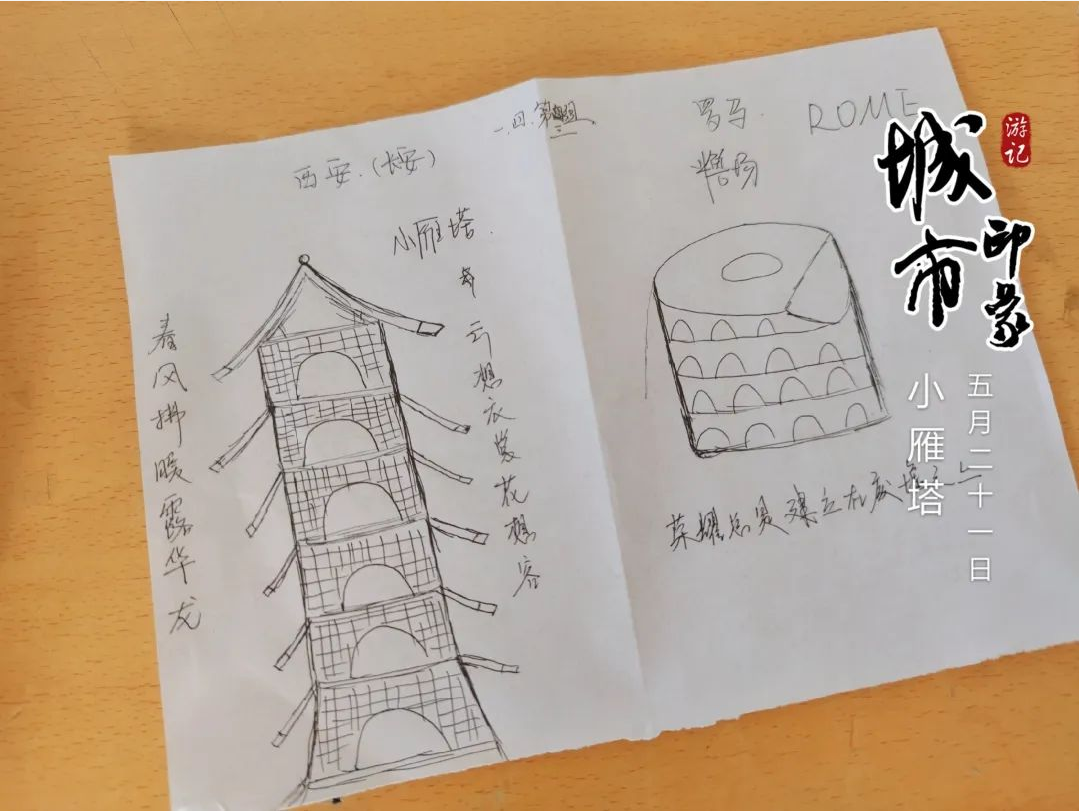 一.四.第
西安.(长安)
小雁塔.
云想衣裳花想容
春风拂暖露华龙
罗马. ROME
荣耀总是建立在
游记
城市印象
五月二十一日
小雁塔